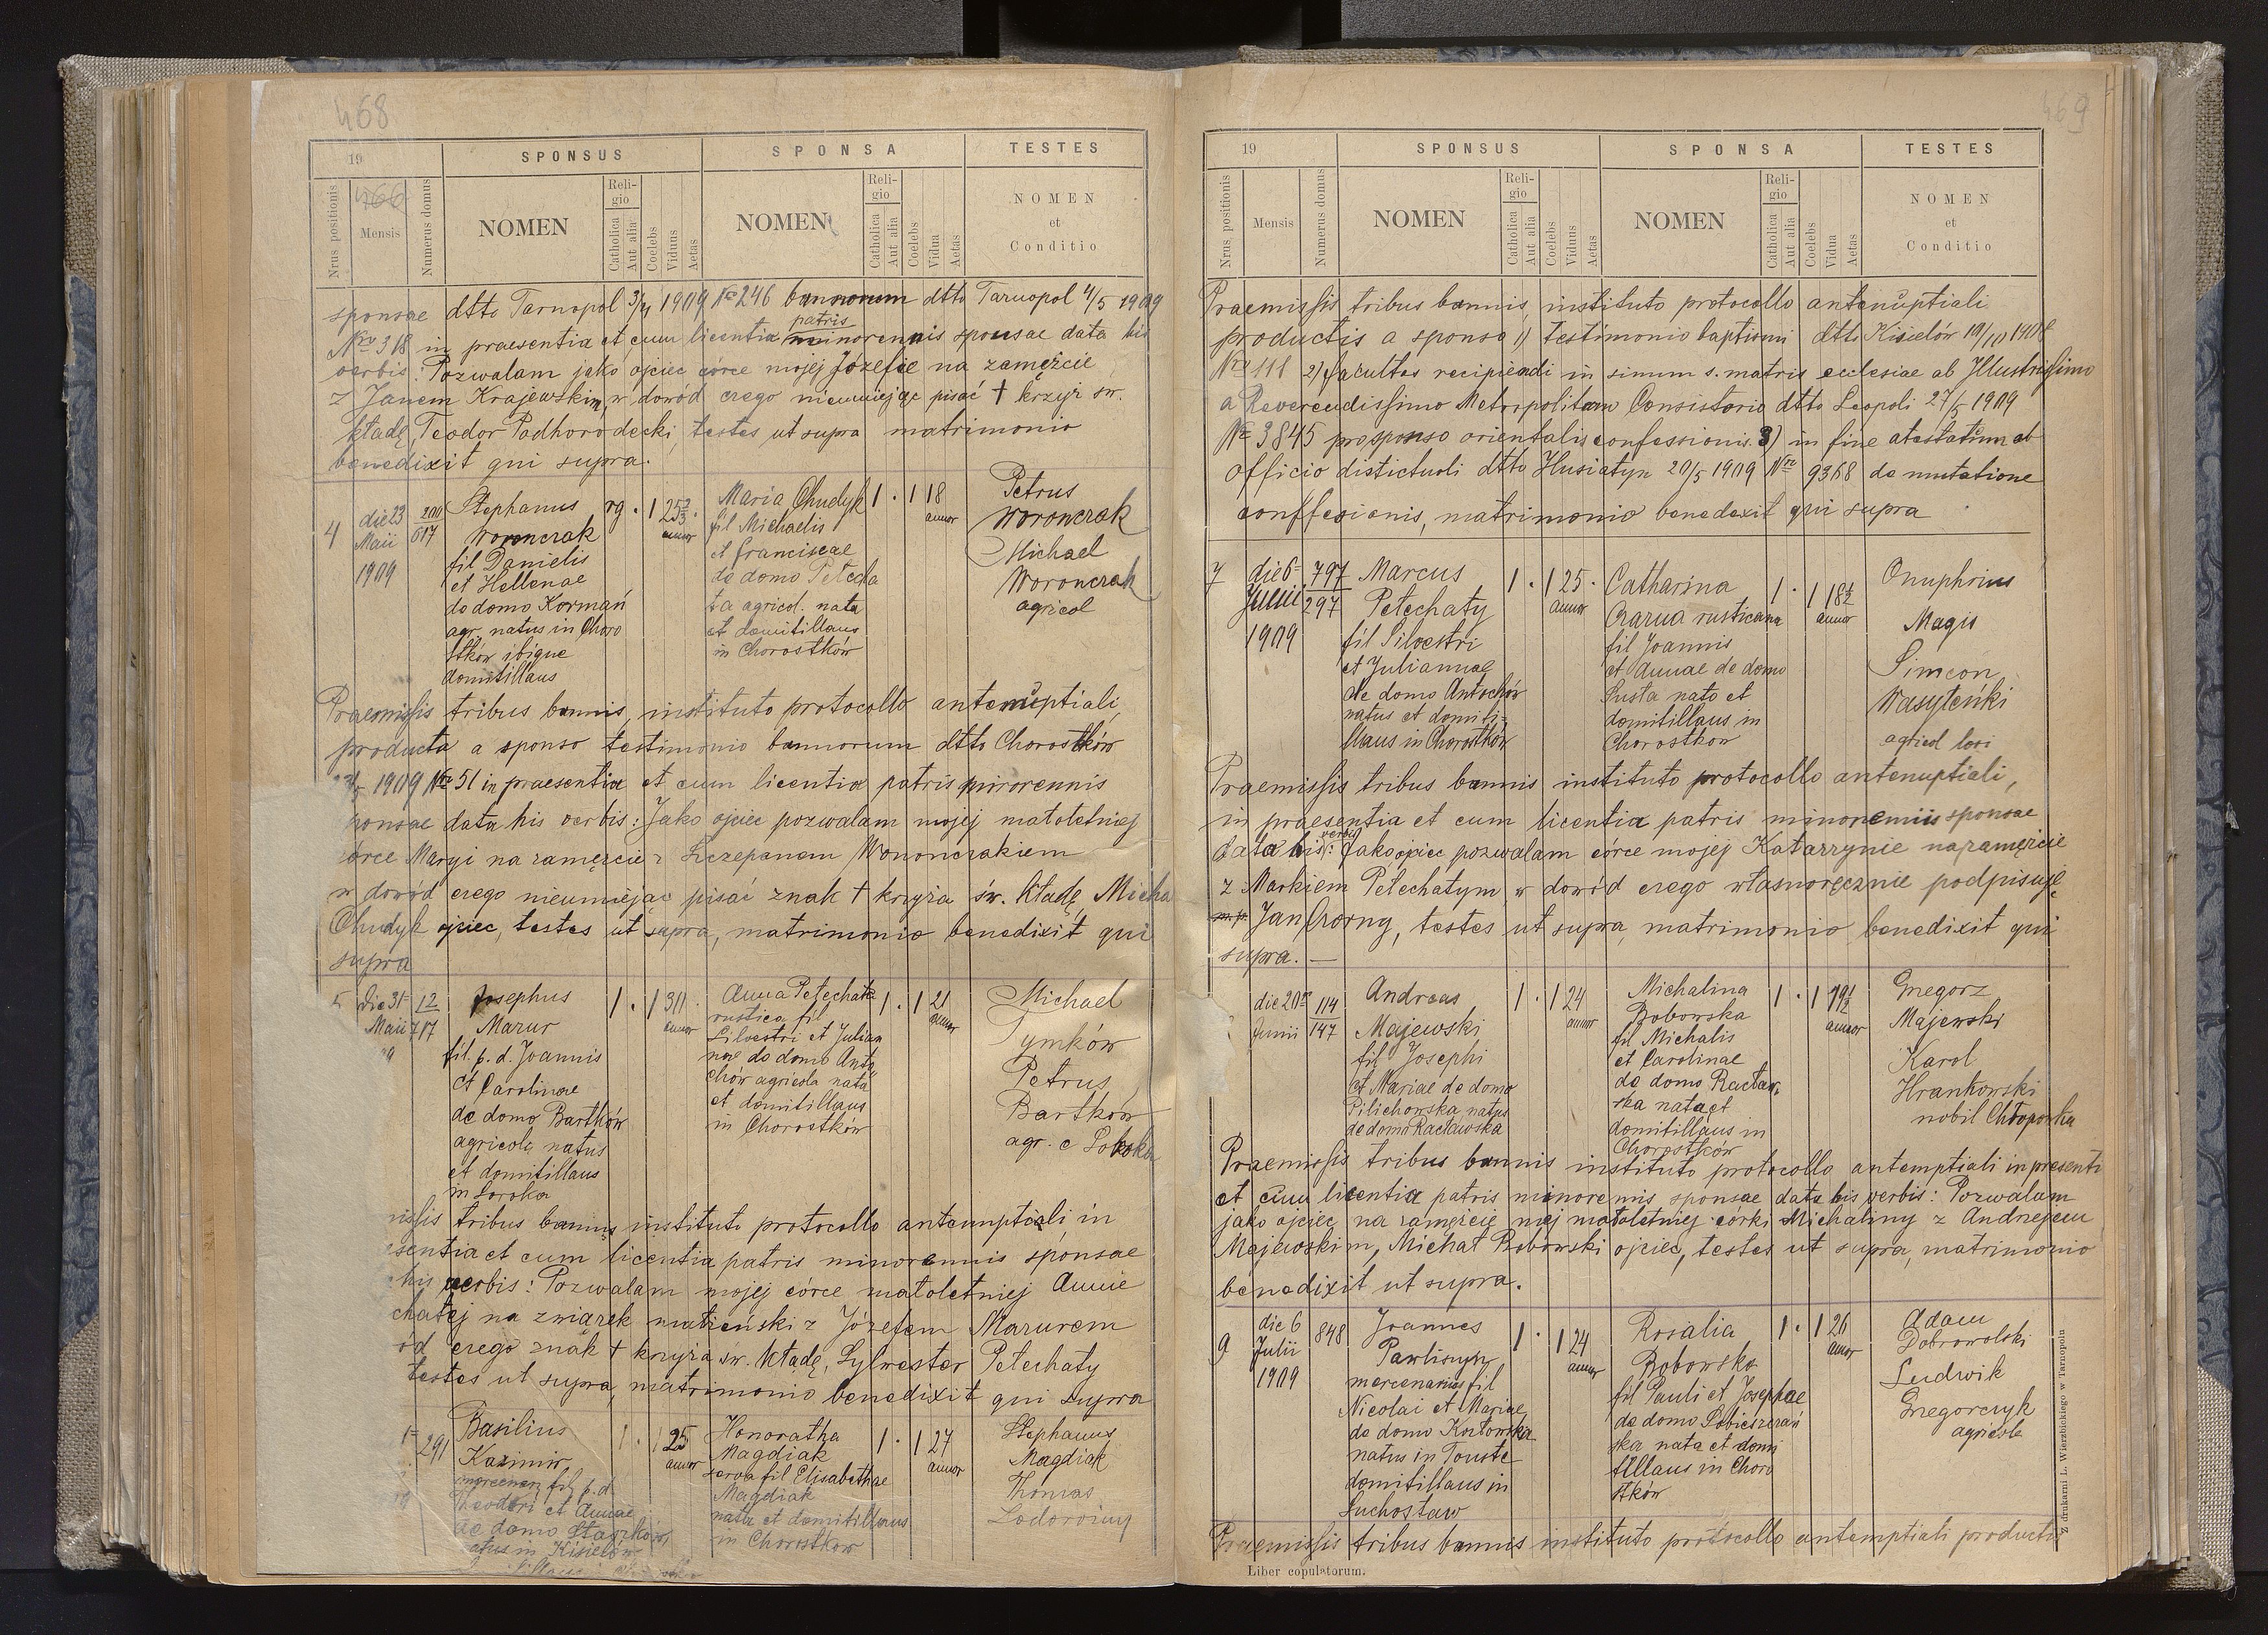 468
19
SPONSUS
SPONSA
TESTES
Nrus positionis
466
Mensis
Numerus domus
NOMEN
Religio
Catholica
Aut alia
Coelebs
Viduus
Aetas
NOMEN
Religio
Catholica
Aut alia
Coelebs
Vidua
Aetas
NOMEN
et
Conditio
sponsae dtto Tarnopol 1909 No 246 bannorum dtto Tarnopol 4/5 1909
Nro 318 in praesentia et cum licentia patris minorennis sponsae data his
verbis: Pozwalam jako ojciec córce mojej Józefie na zamęście
z Janem Krajewskim, w dowód czego nieumiejąc pisać † krzyż św.
kładę, Teodor Podhorodecki, testes ut supra matrimonio
benedixit qui supra.
4
die 23
Maii
1909
200
617
Stephanus
Woronczak
fil Danielis
et Hellenae
de domo Kormań
agr. natus in Choro
stków ibique
domitillaus
rg. 1 25
annor
Maria Chudyk
fil Michaelis
et Franciscae
de domo Petecha
ta agricol. nata
et domitillaus
in Chorostków
1 . 1 18
annor
Petrus
Woronczak
Michael
Woronczak
agricol
Praemissis tribus bannis, instituto protocollo antenuptiali,
producta a sponso testimonio bannorum dtto Chorostków
1909 Nro 51 in praesentia et cum licentia patris minorennis
ponsae data his verbis: Jako ojciec pozwalam mojej małoletniej
órce Maryi na zamęzcie z Szczepanem Woronczakiem
w dowód czego nieumiejąc pisać znak † krzyża św. kładę Micha
Chudyk ojciec, testes ut supra, matrimonio benedixit qui
supra
5
die 31
Maii
12
717
Josephus
Mazur
fil. p. d. Joannis
et Carolinae
de domo Bartków
agricola natus
et domitillaus
in Soroka
1 . 1 30
annor
Anna Petechata
rustica fil
Silvestri et Julian
nae de domo Anto
chów agricola nata
et domitillaus
in Chorostków
1 . 1 21
annor
Michael
Tymków
Petrus
Bartków
agr. e Soroka
missis tribus bannis instituto protocollo antenuptiali, in
esentia et cum licentia patris minorennis sponsae
his verbis: Pozwalam mojej córce małoletniej Annie
chatej na związek małżeński z Józefem Mazurem
ód czego znak † krzyża św. kładę, Sylwester Petechaty
testes ut supra, matrimonio benedixit qui supra
291
Basilius
Kazimir
mercenar, fil p. d.
Theodori et Annae
de domo Staszków
atus in Kisielów
1 . 1 25
annor
Honoratha
Magdiak
serva fil Elisabethae
Magdiak
nata et domitillaus
in Chorostków
1 . 1 27
annor
Stephanus
Magdiak
Thomas
469
19
SPONSUS
SPONSA
TESTES
Nrus positionis
Mensis
Numerus domus
NOMEN
Religio
Catholica
Aut alia
Coelebs
Viduus
Aetas
NOMEN
Religio
Catholica
Aut alia
Coelebs
Vidua
Aetas
NOMEN
et
Conditio
Praemissis tribus bannis, instituto protocollo antenuptiali
productis a sponso 1) testimonio baptismi dtto Kisielów 1908
Nro 111 2) facultas recipiendi in sinum s. matris ecclesiae ab Illustrissimo
a Reverendissimo Metropolitano Consistorio dtto Leopoli 27/5 1909
No 3845 pro sponso orientalis confessionis. 3) in fine atestatum ab
officio distictuoli dtto Husiatyn 20/5 1909 Nro 9368 de mutatione
conffesionis, matrimonio benedexit qui supra
7
die 6
Junii
1909
797
297
Marcus
Petechaty
fil Silvestri
et Juliannae
de domo Antochów
natus et domiti-
llaus in Chorostków
1 . 1 25.
annor
Catharina
Czarna rusticana
fil Joannis
et Annae de domo
Susta nato et
domitillaus in
Chorostkow
1 . 1 18½
annor
Onuphrius
Magis
Simeon
Wasyleńki
agricol loci
Praemissis tribus bannis instituto protocollo antenuptiali,
in praesentia et cum licentia patris minorennis sponsae
data his verbis: Jako ojciec pozwalam córce mojej Katarzynie na zamęzcie
z Markiem Petechatym, w dowód czego własnoręcznie podpisuję
Jan Czorny, testes ut supra, matrimonio benedixit qui
supra. —
die 20
Junii
114
147
Andreas
Majewski
fil Josephi
et Mariae de domo
Pilichowska natus
de domo Racławska
1 . 1 24
annor
Michalina
Bobowska
fil Michalis
et Carolinae
de domo Racław-
ska nata et
domitillaus in
Chorostków
1 . 1 19½
annor
Gregorz
Majewski
Karol
Hrankowski
nobil Chłopówka
Praemissis tribus bannis instituto protocollo antemptiali in presenti
et cum licentia patris minorennis sponsae data his verbis: Pozwalam
jako ojciec na zamęzcie mej małoletniej córki Michaliny z Andrzejem
Majewskim, Michał Bobowski ojciec, testes ut supra, matrimonio
benedixit ut supra.
9
die 6
Julii
1909
848
Joannes
Pawliszyn
mercenarius fil
Nicolai et Mariae
de domo Kozłowska
natus in Touste
domitillaus in
Suchostaw
1 . 1 24
annor
Rosalia
Bobowska
fil Pauli et Josephae
de domo Sobieszczań
ska nata et domi
tillaus in Choro
stków
1 . 1 26
annor
Adam
Dobrowolski
Ludwik
Gregorczyk
agricola
Praemissis tribus bannis instituto protocollo antemptiali productis
Liber copulatorum.
Z drukarni L. Wierzbickiego w Tarnopolu